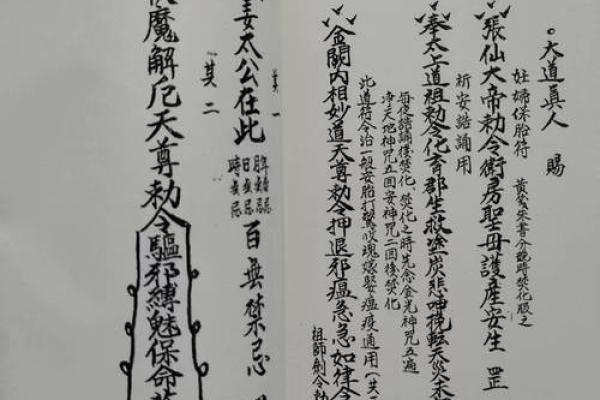 大道真人　賜
妊婦保胎符　黃紙朱書分娩時焚化服之
張仙大帝勅令衛房聖母護產安生罡
祈安誥誦用
奉太上道祖勅令化育群生救塗炭悲呻挽転天災人
每次誥誦後焚化、焚化之時先念金光神咒五遍
淨天地神咒五回安神咒二回後焚化
此道符令治一般安胎打驚收魂嫁娶瘟疫通用
金闕內相妙道天尊勅令押退邪瘟急急如律令
祖師劍令
其一
姜太公在此
年無忌
月無忌
日無忌
時無忌
百無禁忌
其二
魔解厄天尊勅令驅邪縛魅保命